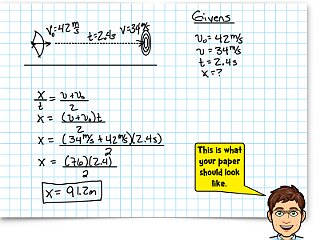 v₀=42 m/s
t=2.4s
v=34 m/s
Givens
v₀ = 42 m/s
v = 34 m/s
t = 2.4s
x = ?
x/t = (v+v₀)/2
x = (v+v₀)t/2
x = (34 m/s + 42 m/s)(2.4s)/2
x = (76)(2.4)/2
x = 91.2m
This is what
your paper
should look
like.